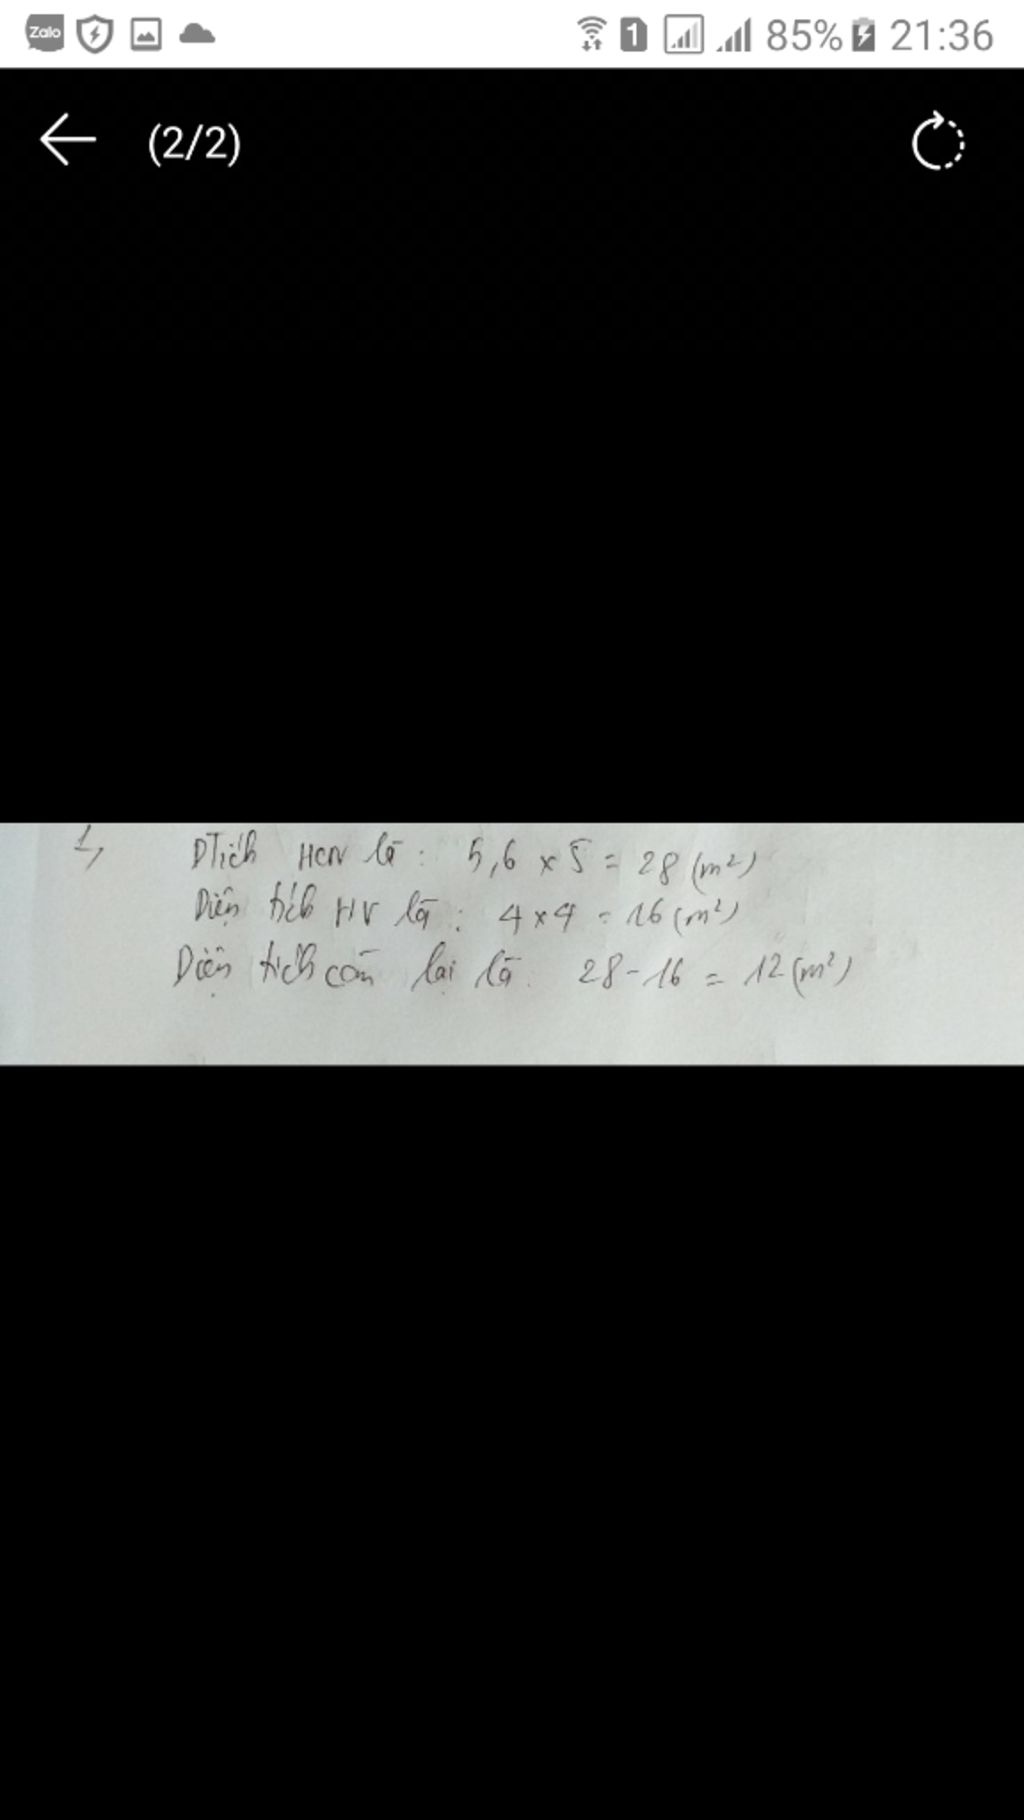 Zalo
1
85%
21:36
(2/2)
1,
DTích HCN là : 5,6 x 5 = 28 (m²)
Diện tích HV là : 4 x 4 = 16 (m²)
Diện tích còn lại là. 28 - 16 = 12 (m²)